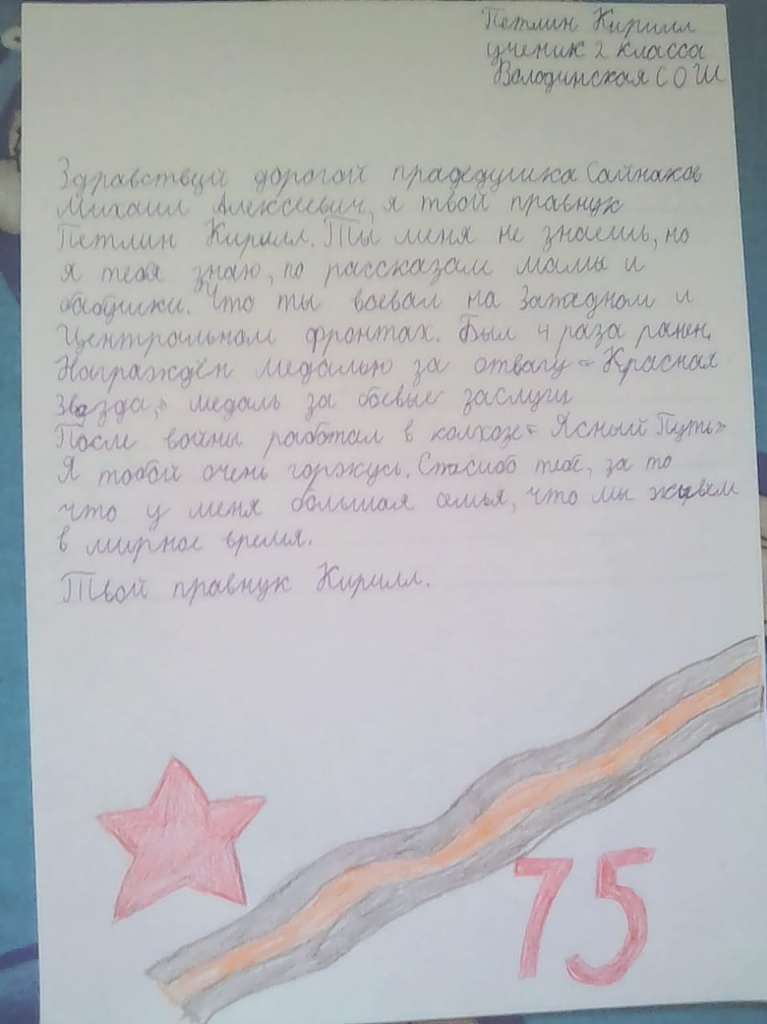 Петлин Кирилл
ученик 2 класса
Володинская СОШ
Здравствуй дорогой прадедушка Сайнаков
Михаил Алексеевич, я твой правнук
Петлин Кирилл. Ты меня не знаешь, но
я тебя знаю, по рассказам мамы и
бабушки. Что ты воевал на Западном и
Центральном фронтах. Был 4 раза ранен.
Награждён медалью за отвагу "Красная
Звезда," медаль за боевые заслуги
После войны работал в колхозе "Ясный Путь"
Я тобой очень горжусь. Спасибо тебе, за то
что у меня большая семья, что мы живём
в мирное время.
Твой правнук Кирилл.
75